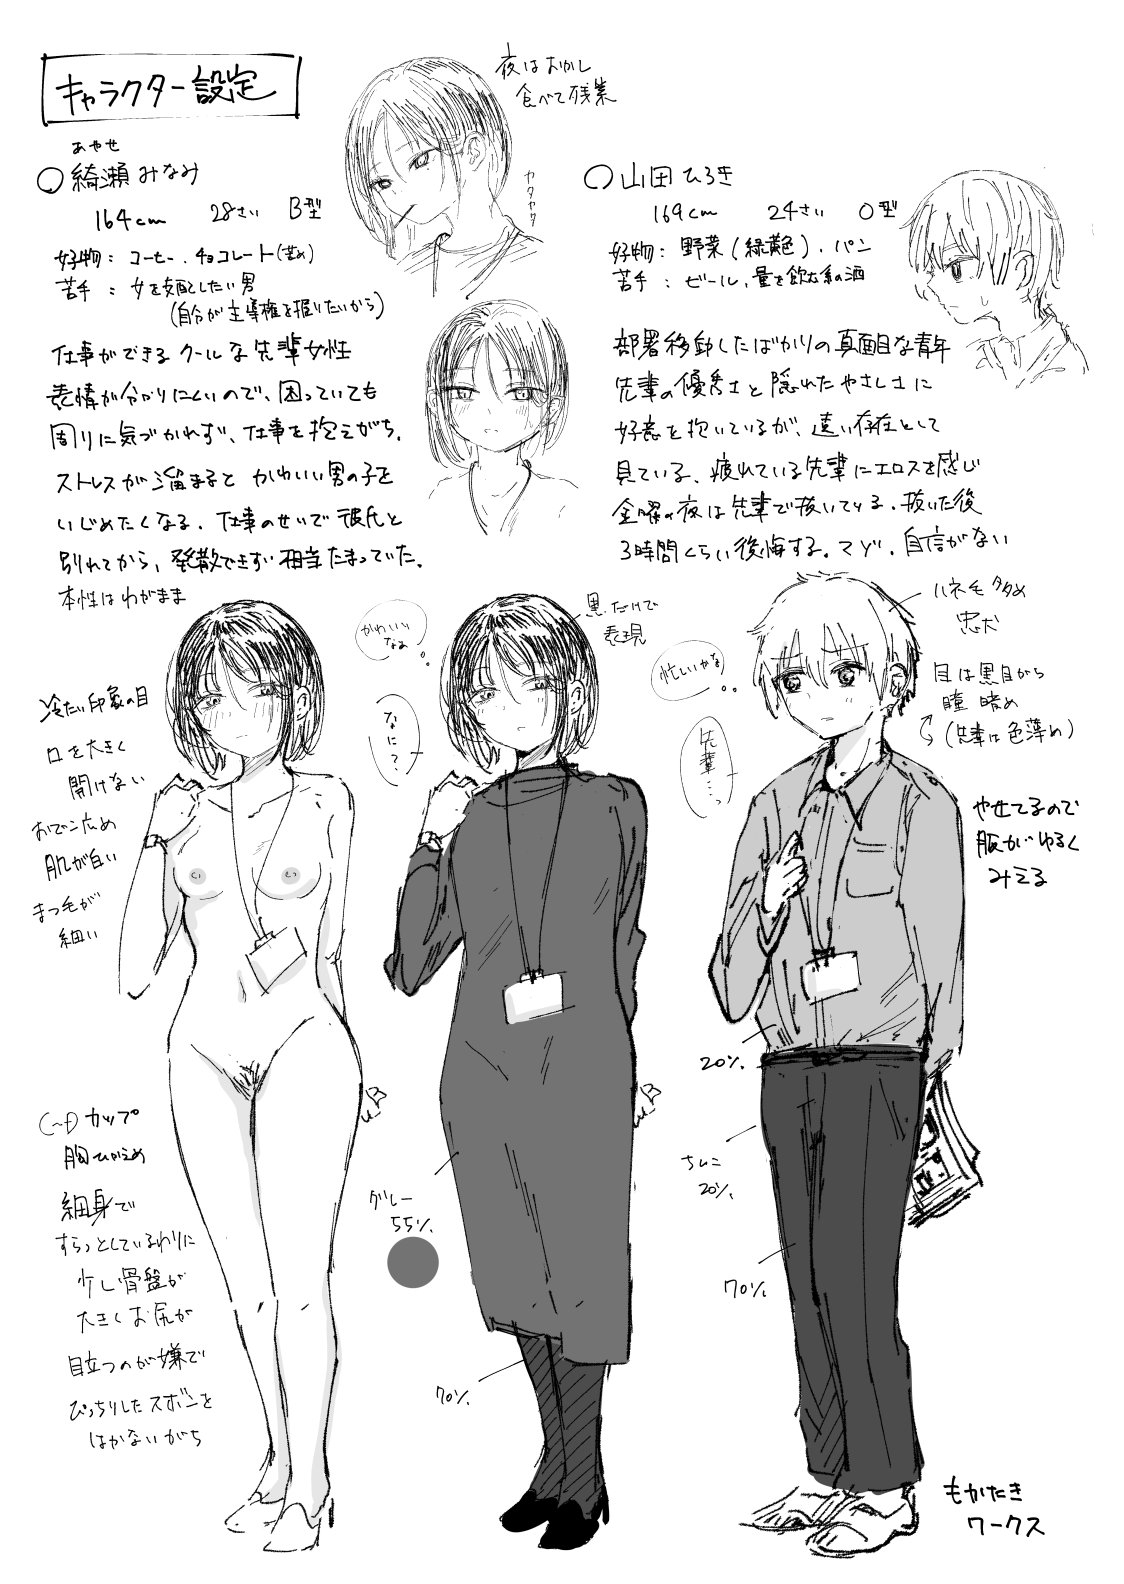 キャラクター設定
夜はおかし
食べて残業
カタカタ
あやせ
○綺瀬みなみ
164cm 28さい B型
好物：コーヒー、チョコレート(苦め)
苦手：女を支配したい男
(自分が主導権を握りたいから)
仕事ができるクールな先輩女性
表情が分かりにくいので、困っていても
周りに気づかれず、仕事を抱えがち。
ストレスが溜まるとかわいい男の子を
いじめたくなる。仕事のせいで彼氏と
別れてから、発散できず相当たまっていた。
本性はわがまま
○山田ひろき
169cm 24さい O型
好物：野菜(緑黄色)、パン
苦手：ビール、量を飲む系の酒
部署移動したばかりの真面目な青年
先輩の優秀さと隠れたやさしさに
好意を抱いているが、遠い存在として
見ている。疲れている先輩にエロスを感じ
金曜の夜は先輩で抜いている。抜いた後
3時間くらい後悔する。マゾ。自信がない
冷たい印象の目
口を大きく
開けない
おでこ広め
肌が白い
まつ毛が
細い
(~f)カップ
胸ひかえめ
細身で
すらっとしているわりに
少し骨盤が
大きくお尻が
目立つのが嫌で
ぴっちりしたズボンを
はかないがち
かわいい
なぁ
なに？
黒だけで
表現
グレー
55%
70%
忙しいかな
先輩…っ
ハネ毛多め
忠犬
目は黒目がち
瞳暗め
(先輩は色薄め)
やせてるので
服がゆるく
みえる
20%
ちんこ
20%
70%
もかたき
ワークス